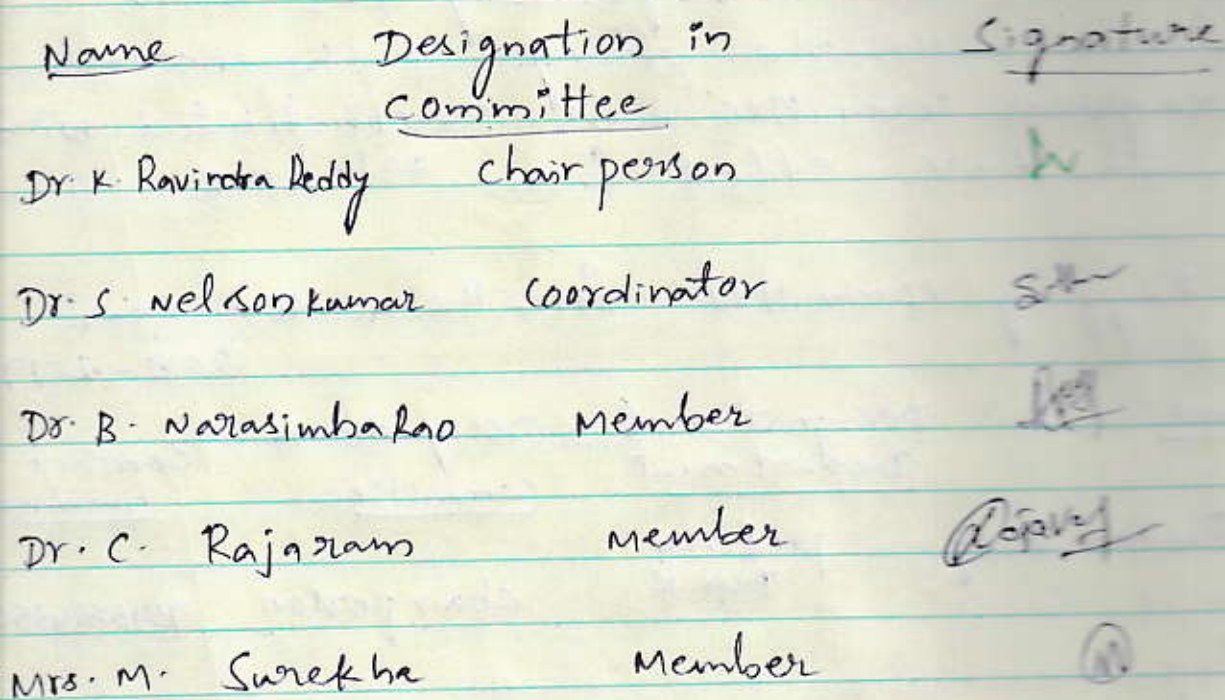 Name Designation in Signature
Committee
Dr. K. Ravindra Reddy Chair person
Dr. S. Nelson Kumar Coordinator
Dr. B. Narasimha Rao Member
Dr. C. Rajaram Member
Mrs. M. Surekha Member